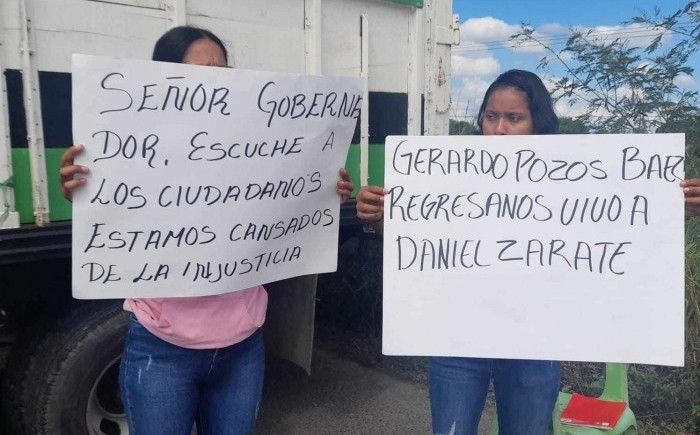 SEÑOR GOBERNA
DOR, ESCUCHE A
LOS CIUDADANOS
ESTAMOS CANSADOS
DE LA INJUSTICIA
GERARDO POZOS BAEZ
REGRESANOS VIVO A
DANIEL ZARATE